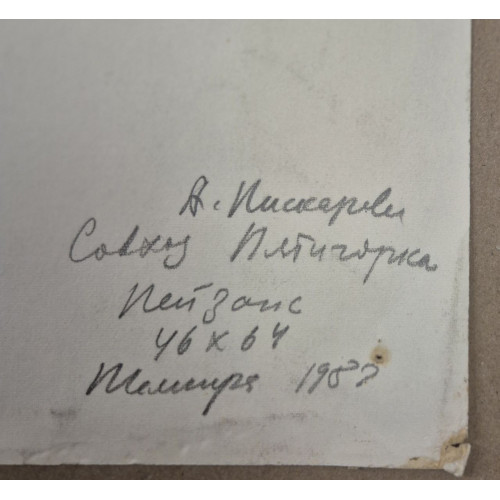 А. Пискарёв
Совхоз Пятигорка
Пейзаж
46 х 64
Темпера 198